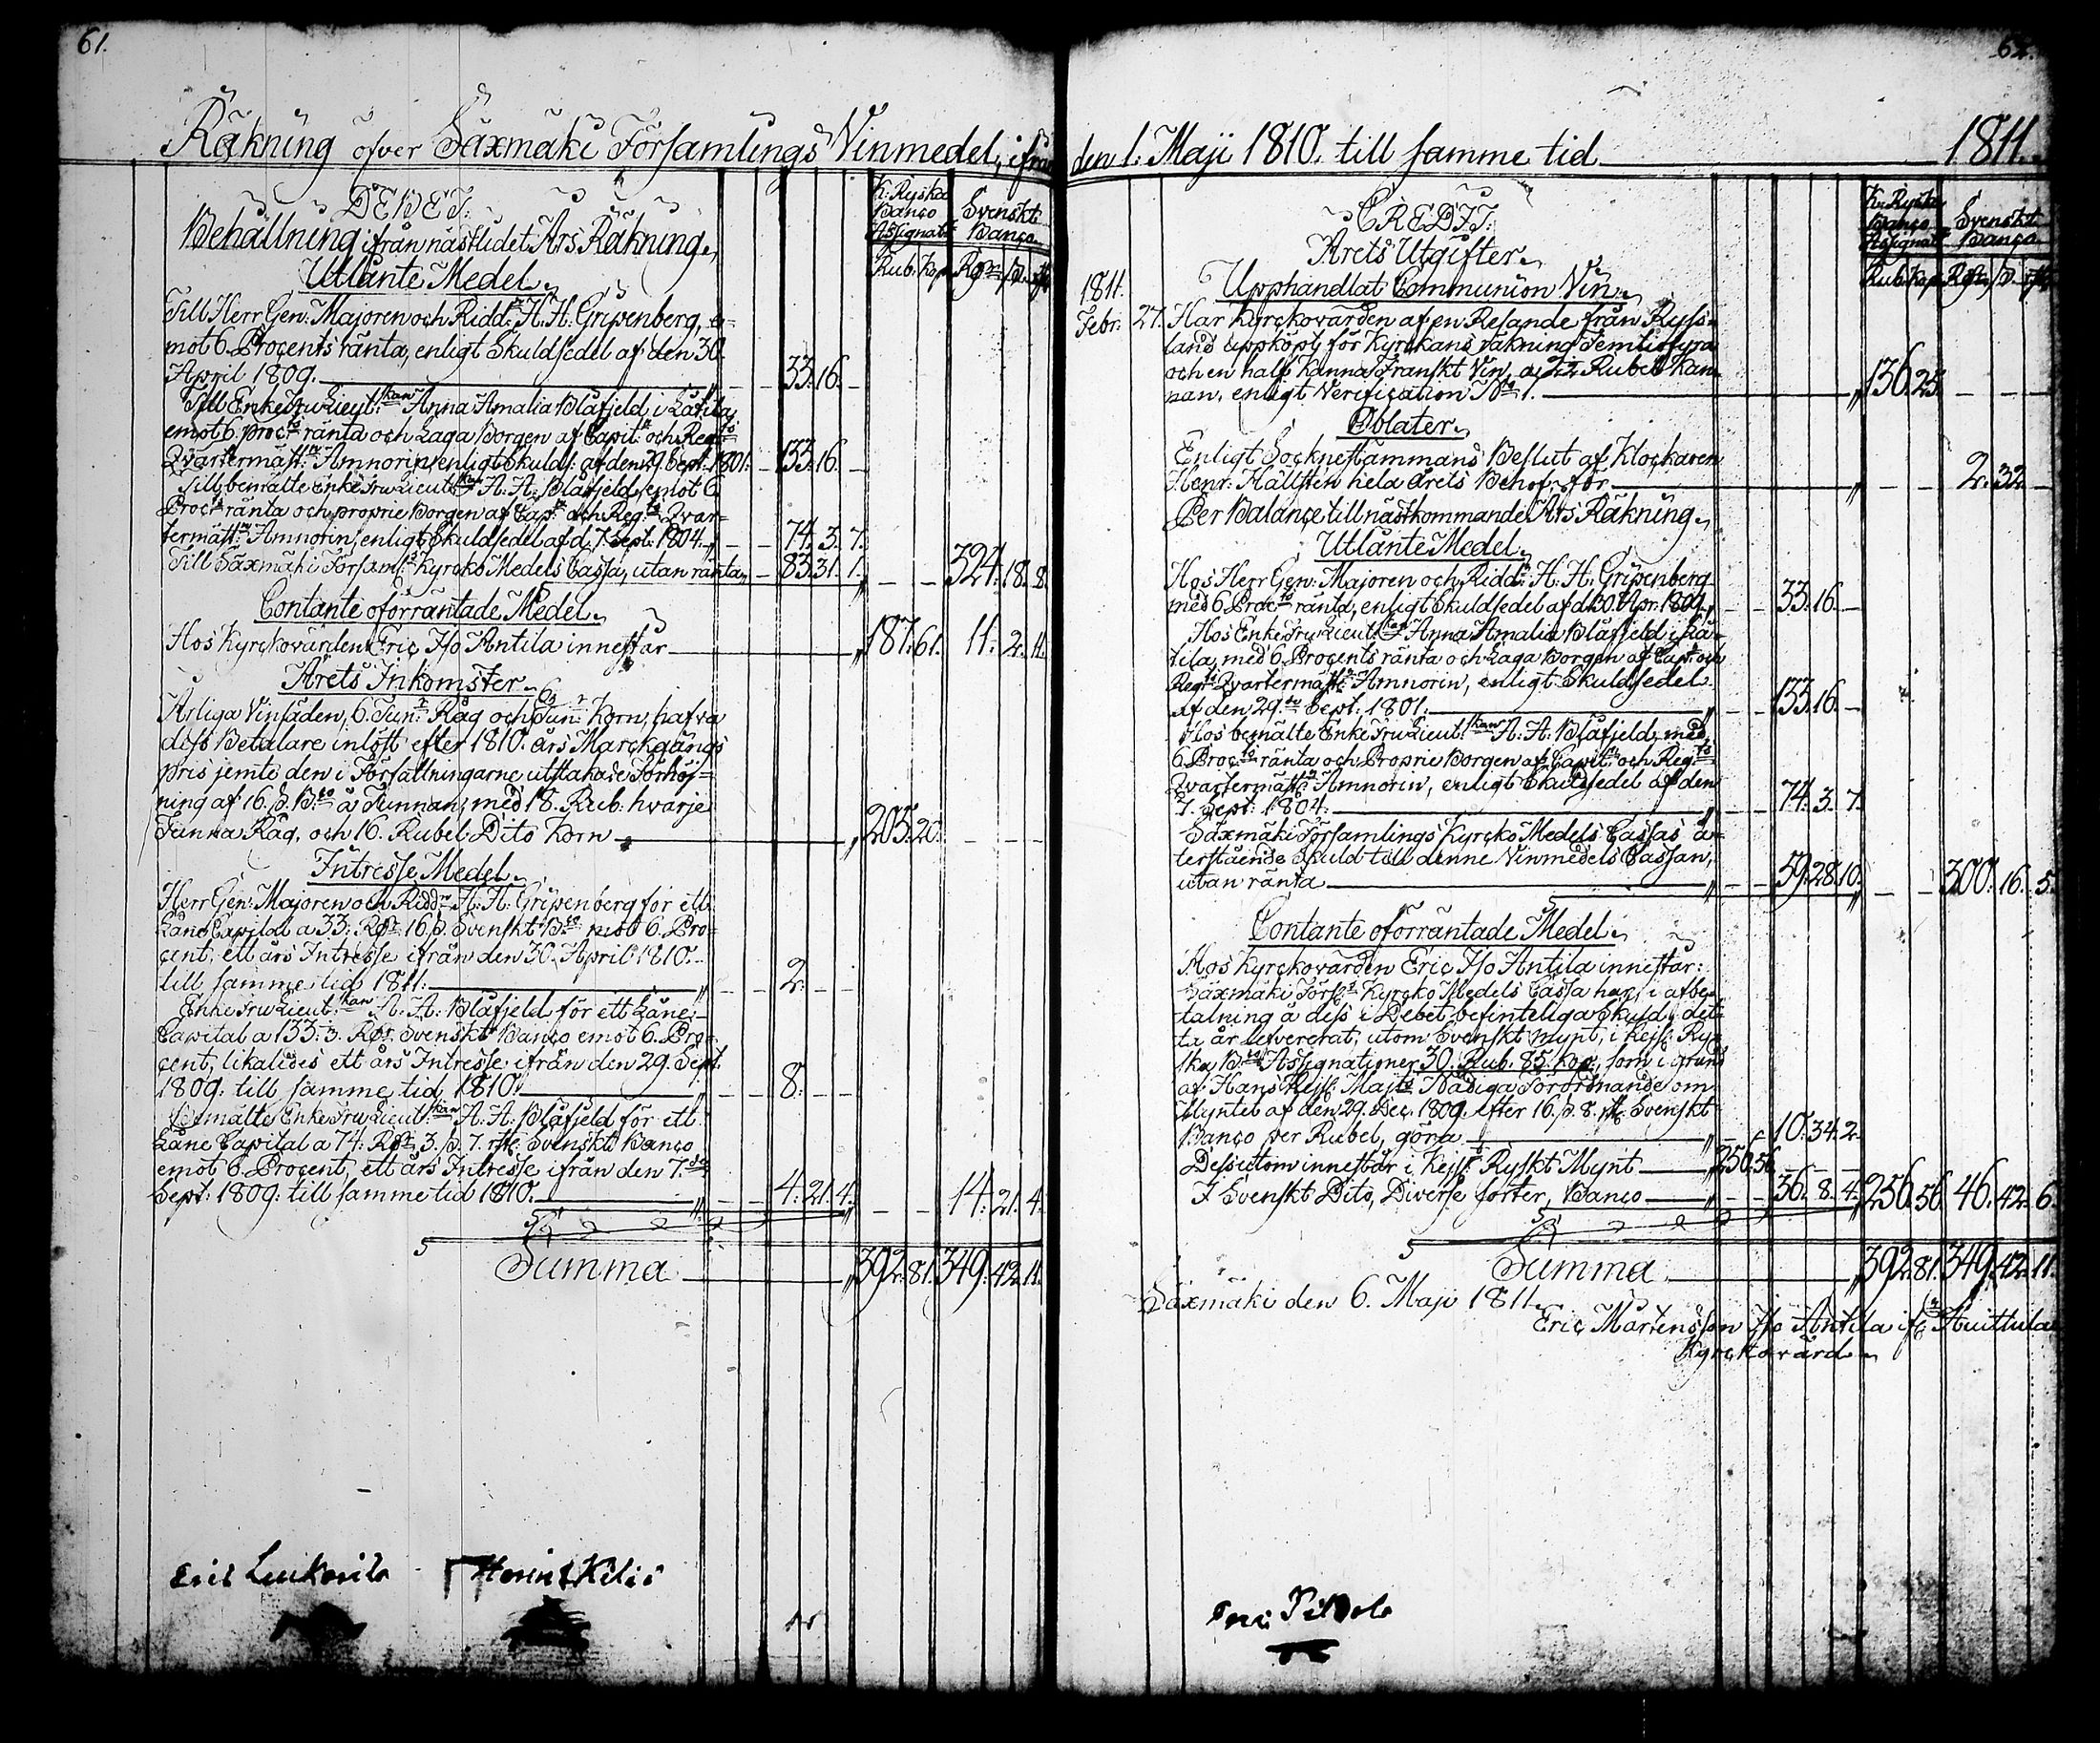 61.
Räkning öfver Säxmäki Församlings Vinmedel, ifrån
DEBET.
K: Ryska Banco Assignat:
Svenskt Banco
Behållning ifrån nästludet Års Räkning.
Rub. Kop. Rdr ß. rst.
Utlånte Medel.
Till Herr Gen: Majoren och Ridd: H. H: Gripenberg, e-
mot 6. Procents ränta, enligt Skuldsedel af den 30.
April 1809. 33. 16. -
Till EnkeFru Lieut:skan Anna Amalia Blåfjeld i Låtila,
emot 6. proc:ts ränta och Laga Borgen af Capit: och Reg:ts
Qvartermäst: Amnorin, enligt Skulds: af den 29. Sept: 1801. 133. 16. -
Till bemälte EnkeFru Lieut:skan A: A: Blåfjeld, emot 6.
Proc:ts ränta och proprie Borgen af Cap: och Reg:ts Qvar-
termäst: Amnorin, enligt Skuldsedel af d. 7. Sept: 1804. 74. 3. 7.
Till Säxmäki Förs:aml:s Kyrcko Medels Cassa, utan ränta 83. 31. 1. - - 324. 18. 8.
Contante oförräntade Medel.
Hos Kyrckovärden Eric Iso Antila innestår 187. 61. 11. 2. 11.
Årets Inkomster.
Årliga Vinsäden, 6. Tun:r Råg och 6 Tun:r Korn, hafva
dess Betalare inlöst efter 1810. års Marckgångs
pris jemte den i Författningarne utstakade Förhöj-
ning af 16. ß. B:co å Tunnan, med 18. Rub: hvarje
Tunna Råg, och 16. Rubel Dito Korn 205. 20. - - -
Intresse Medel.
Herr Gen: Majoren och Ridd: H: H: Gripenberg för ett
Låne Capital a 33: Rdr 16 ß. Svenskt B:co mot 6. Pro-
cent, ett års Intresse ifrån den 30. April 1810.
till samme tid 1811. 2. - -
EnkeFru Lieut:skan A: A: Blåfjeld för ett Låne-
Capital a 133: 3. Rdr Svenskt Banco emot 6. Pro-
cent, likaledes ett års Intresse ifrån den 29. Sept:
1809. till samme tid 1810. 8. - -
Bemälte EnkeFru Lieut:skan A: A: Blåfjeld för ett
Låne Capital a 74: Rdr 3. ß. 7. rst. Svenskt Banco
emot 6. Procent, ett års Intresse ifrån den 7.de
Sept: 1809: till samme tid 1810. 4. 21. 4. - - 14. 21. 4.
Summa 392. 81. 349. 42. 11.
Eric Henric
62.
den 1. Maji 1810. till samme tid 1811.
CREDIT.
K: Ryska Banco Assignat:
Svenskt Banco
Årets Utgifter.
Rub. Kop. Rdr ß. rst.
1811. Upphandlat Communion Vin.
Febr: 27. Har Kyrckovärden af en Resande från Ryss-
land uppköpt för Kyrckans räkning Femtiofyra
och en half Kanna Franskt Vin, a 2½ Rubel Kan-
nan, enligt Verification N:o 1. 136. 25. - - -
Oblater.
Enligt Socknestämmans Beslut af Klockaren
Henr: Hällsten hela årets Behof för - - 2. 32. -
Per Balance till nästkommande Års Räkning.
Utlånte Medel.
Hos Herr Gen: Majoren och Ridd: H: H: Gripenberg
med 6. Proc:ts ränta, enligt Skuldsedel af d. 30. Apr: 1809. 33. 16. -
Hos EnkeFru Lieut:skan Anna Amalia Blåfjeld i Lå-
tila, med 6. Procents ränta och Laga Borgen af Capt: och
Reg:ts Qvartermäst: Amnorin, enligt Skuldsedel
af den 29.de Sept: 1801. 133. 16. -
Hos bemälte EnkeFru Lieut:skan A: A: Blåfjeld, med
6. Proc:ts ränta och Proprie Borgen af Capit: och Reg:ts
Qvartermäst: Amnorin, enligt Skuldsedel af den
7. Sept: 1804. 74. 3. 7.
Säxmäki Församlings Kyrcko Medels Cassas å-
terstående Skuld till denne Vinmedels Cassan,
utan ränta 59. 28. 10. - - 300. 16. 5.
Contante oförräntade Medel.
Hos Kyrckovärden Eric Iso Antila innestår:
Säxmäki Förs:s Kyrcko Medels Cassa har, i afbe-
talning å dess i Debet befinteliga Skuld, det-
ta år lefvererat, utom Svenskt mynt, i Kejs: Ry-
ska B:co Assignationer 30. Rub. 85. Kop., som i grund
af Hans Kejs: Maj:ts Nådiga Förordnande om
Myntet af den 29. Dec. 1809. efter 16. ß. 8. rst. Svenskt
Banco per Rubel, göra 10. 34. 2.
Dessutom innestår i Kejs: Ryskt Mynt 256. 56. - - -
I Svenskt Dito, Diverse sorter, Banco 36. 8. 4. 256. 56. 46. 42. 6.
Summa 392. 81. 349. 42. 11.
Säxmäki den 6. Maji 1811.
Eric Mårtensson Iso Antila ifr: Huittula
Kyrckovärd.